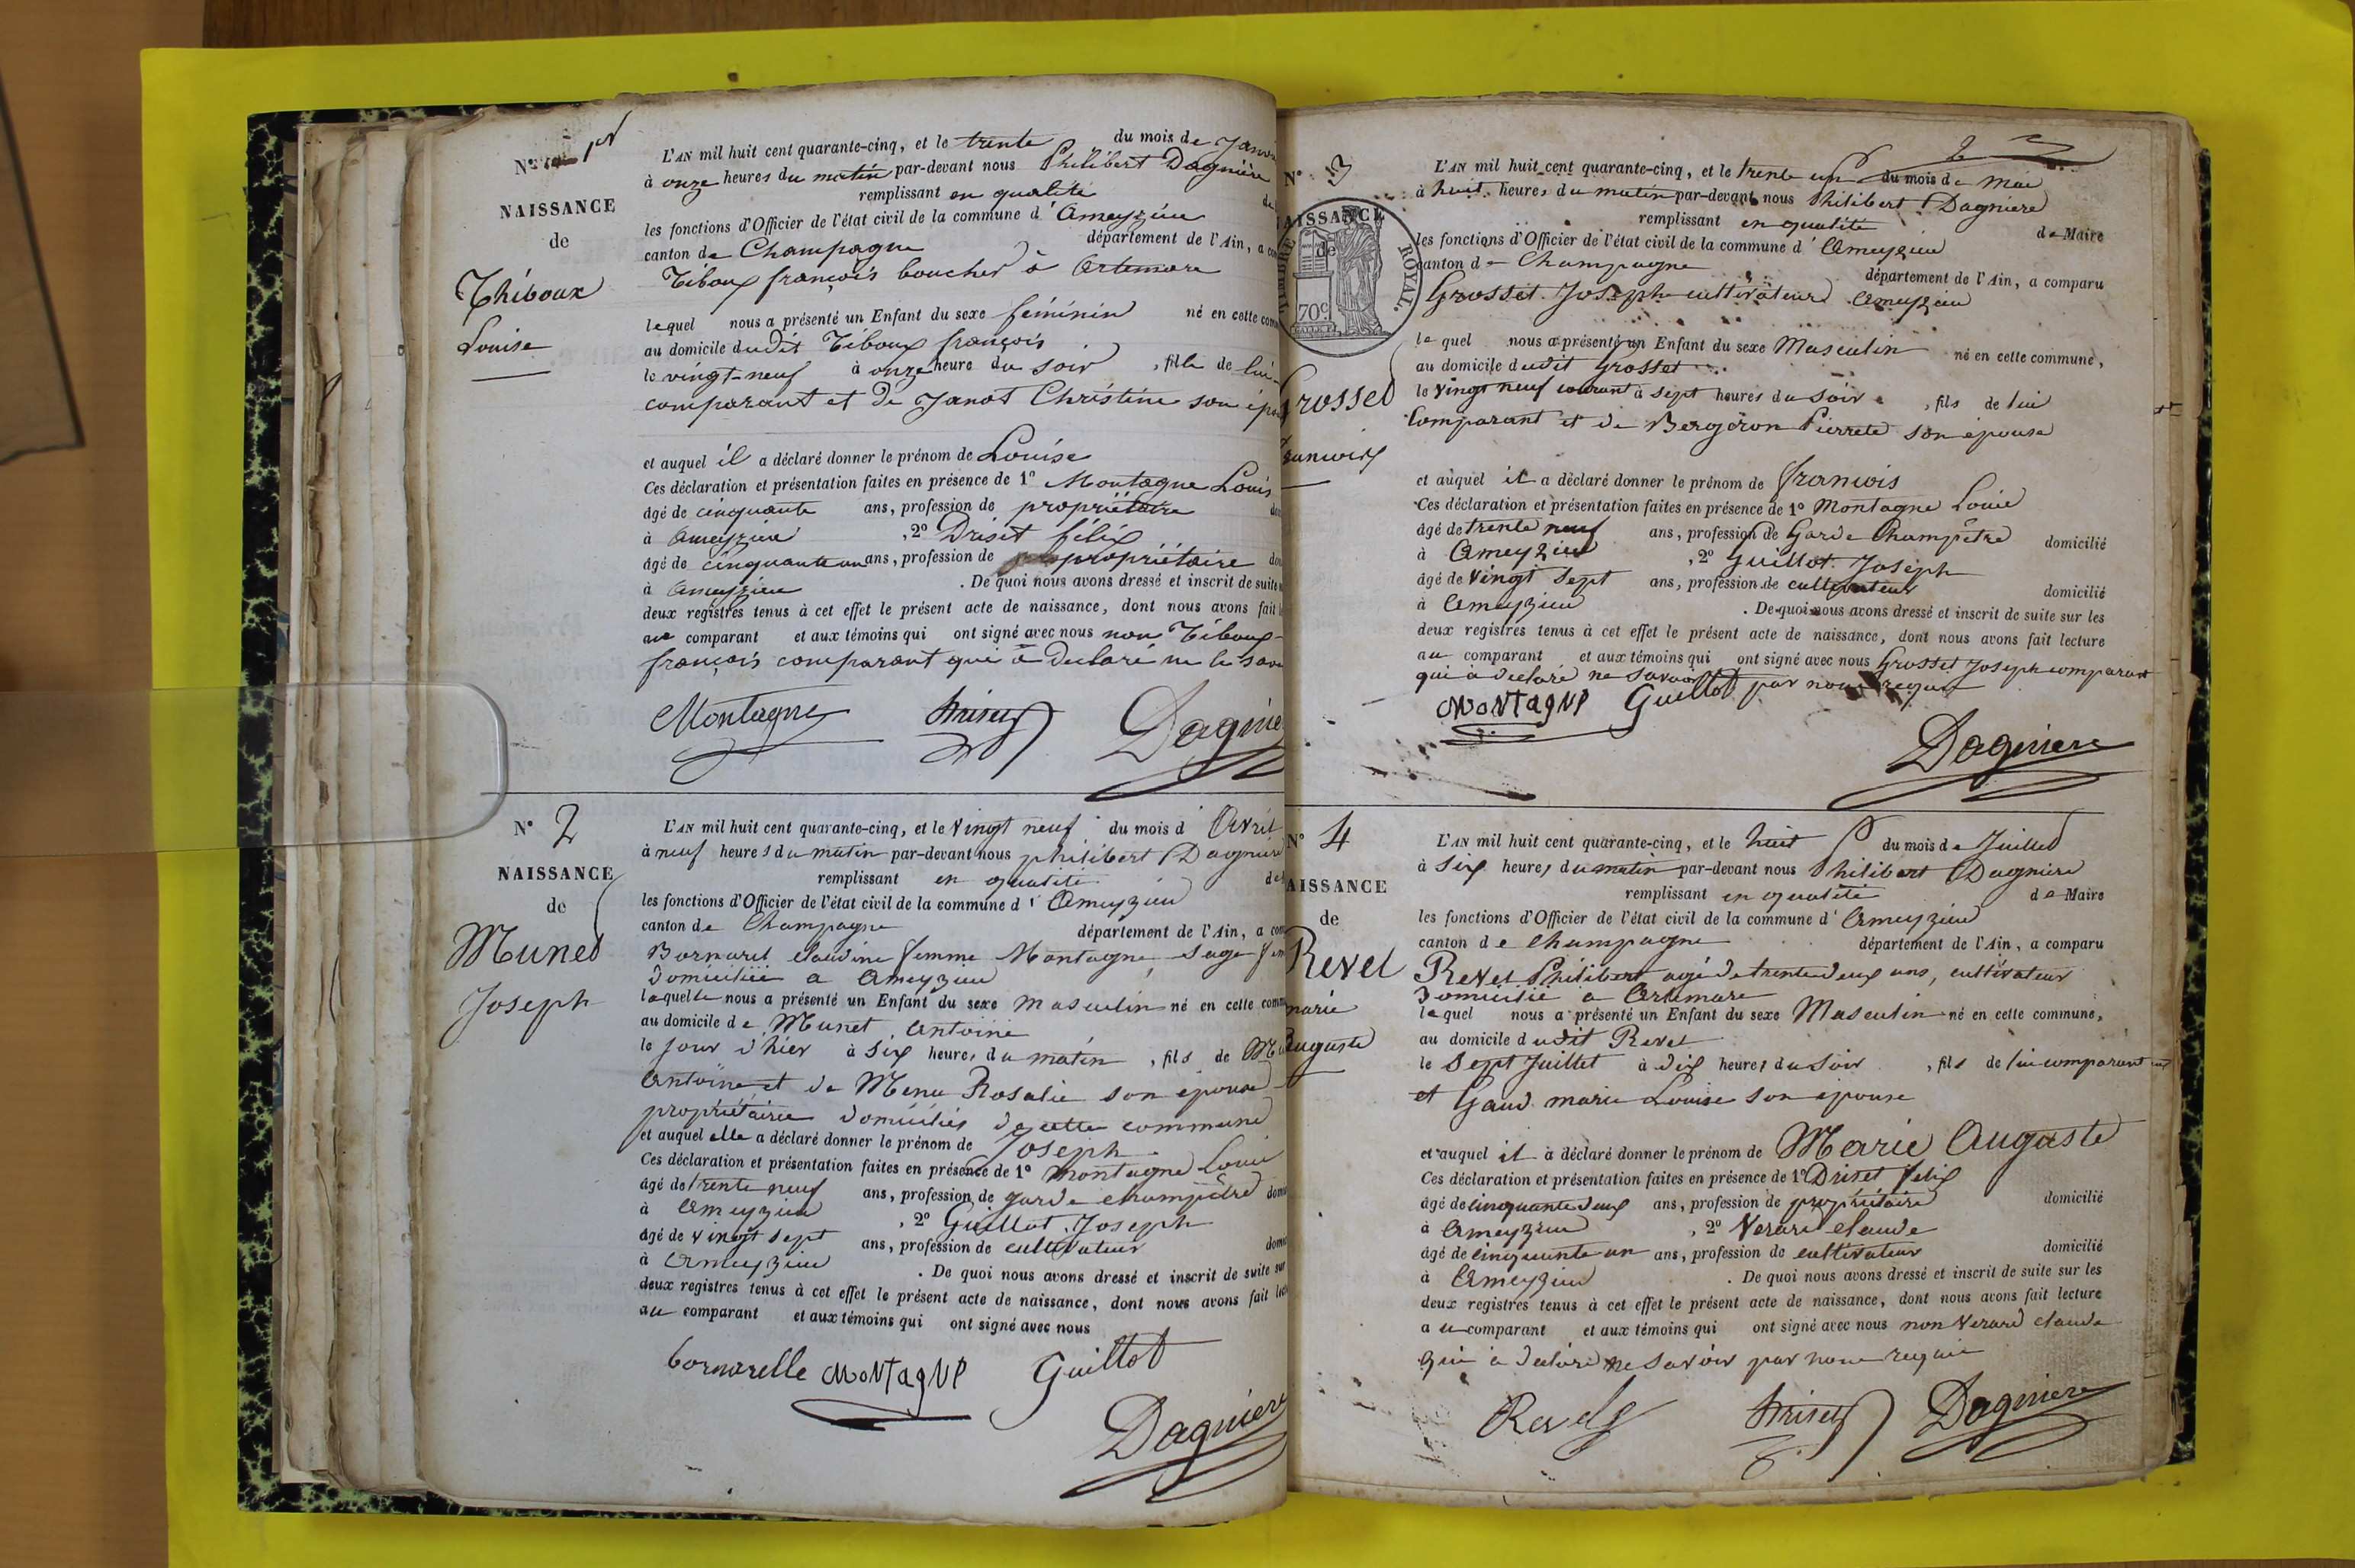 N° 1er
NAISSANCE
de
Thiboux
Louise
L'AN mil huit cent quarante-cinq, et le trente du mois de Janv
à onze heures du matin par-devant nous Philibert Dagnière
remplissant en qualité de
les fonctions d'Officier de l'état civil de la commune d'Ameyzieu
canton de Champagne département de l'Ain, a com
Tiboux françois boucher à Artemare
lequel nous a présenté un Enfant du sexe féminin né en cette com
au domicile dudit Tiboux françois
le vingt-neuf à onze heure du soir, fille de lui
comparant et de Janot Christine son épou
et auquel il a déclaré donner le prénom de Louise
Ces déclaration et présentation faites en présence de 1° Montagne Louis
âgé de cinquante ans, profession de propriétaire do
à Ameyzieu, 2° Driset félix
âgé de cinquante un ans, profession de propriétaire do
à Ameyzieu. De quoi nous avons dressé et inscrit de suite
deux registres tenus à cet effet le présent acte de naissance, dont nous avons fait
au comparant et aux témoins qui ont signé avec nous non Tiboux
françois comparant qui a declaré ne le sav
Montagne Driset Dagnie
N° 2
NAISSANCE
de
Munet
Joseph
L'AN mil huit cent quarante-cinq, et le Vingt neuf du mois d'Avril
à neuf heures du matin par-devant nous philibert Dagniere
remplissant en qualité de
les fonctions d'Officier de l'état civil de la commune d'Ameyzieu
canton de Champagne département de l'Ain, a com
Bornarel Claudine femme Montagne, Sage fem
Domiciliée a Ameyzieu
laquelle nous a présenté un Enfant du sexe masculin né en cette comm
au domicile de Munet Antoine
le jour d'hier à Six heures du matin, fils de Mu
Antoine et de Menu Rosalie son épouse
propriétaires domiciliés de cette commune
et auquel elle a déclaré donner le prénom de Joseph
Ces déclaration et présentation faites en présence de 1° Montagne Louis
âgé de trente neuf ans, profession de garde champêtre domi
à Ameyzieu, 2° Guillot Joseph
âgé de vingt sept ans, profession de cultivateur domi
à Ameyzieu. De quoi nous avons dressé et inscrit de suite sur
deux registres tenus à cet effet le présent acte de naissance, dont nous avons fait lec
au comparant et aux témoins qui ont signé avec nous
bornarelle MONTAGNE Guillot
Dagniere
2
N° 3
AISSANCE
de
TIMBRE ROYAL
70c
Grosset
rancois
L'AN mil huit cent quarante-cinq, et le trente un du mois de Mai
à huit heures du matin par-devant nous Philibert Dagniere
remplissant en qualité de Maire
les fonctions d'Officier de l'état civil de la commune d'Ameyzieu
canton de Champagne département de l'Ain, a comparu
Grosset Joseph cultivateur Ameyzieu
lequel nous a présenté un Enfant du sexe Masculin né en cette commune,
au domicile dudit Grosset
le Vingt neuf courant à sept heures du Soir, fils de lui
Comparant et de Bergeron Pierrete son épouse
et auquel il a déclaré donner le prénom de francois
Ces déclaration et présentation faites en présence de 1° Montagne Louis
âgé de trente neuf ans, profession de Garde Champêtre domicilié
à Ameyzieu, 2° Guillot Joseph
âgé de Vingt Sept ans, profession de cultivateur domicilié
à Ameyzieu. De quoi nous avons dressé et inscrit de suite sur les
deux registres tenus à cet effet le présent acte de naissance, dont nous avons fait lecture
au comparant et aux témoins qui ont signé avec nous Grosset Joseph comparant
qui a declaré ne savoir par nous requis
MONTAGNE Guillot
Dagniere
N° 4
AISSANCE
de
Revel
marie
Auguste
L'AN mil huit cent quarante-cinq, et le huit du mois de Juillet
à Six heures du matin par-devant nous Philibert Dagniere
remplissant en qualité de Maire
les fonctions d'Officier de l'état civil de la commune d'Ameyzieu
canton de Champagne département de l'Ain, a comparu
Revel Philibert agé de trente deux ans, cultivateur
Domicilié a Artemare
lequel nous a présenté un Enfant du sexe Masculin né en cette commune,
au domicile dudit Revel
le Sept Juillet à dix heures du Soir, fils de lui comparant
et Gaud marie Louise son épouse
et auquel il a déclaré donner le prénom de Marie Auguste
Ces déclaration et présentation faites en présence de 1° Driset félix
âgé de cinquante deux ans, profession de propriétaire domicilié
à Ameyzieu, 2° Verard Claude
âgé de cinquante un ans, profession de cultivateur domicilié
à Ameyzieu. De quoi nous avons dressé et inscrit de suite sur les
deux registres tenus à cet effet le présent acte de naissance, dont nous avons fait lecture
au comparant et aux témoins qui ont signé avec nous non Verard Claude
qui a declaré ne savoir par nous requis
Revel Driset Dagniere